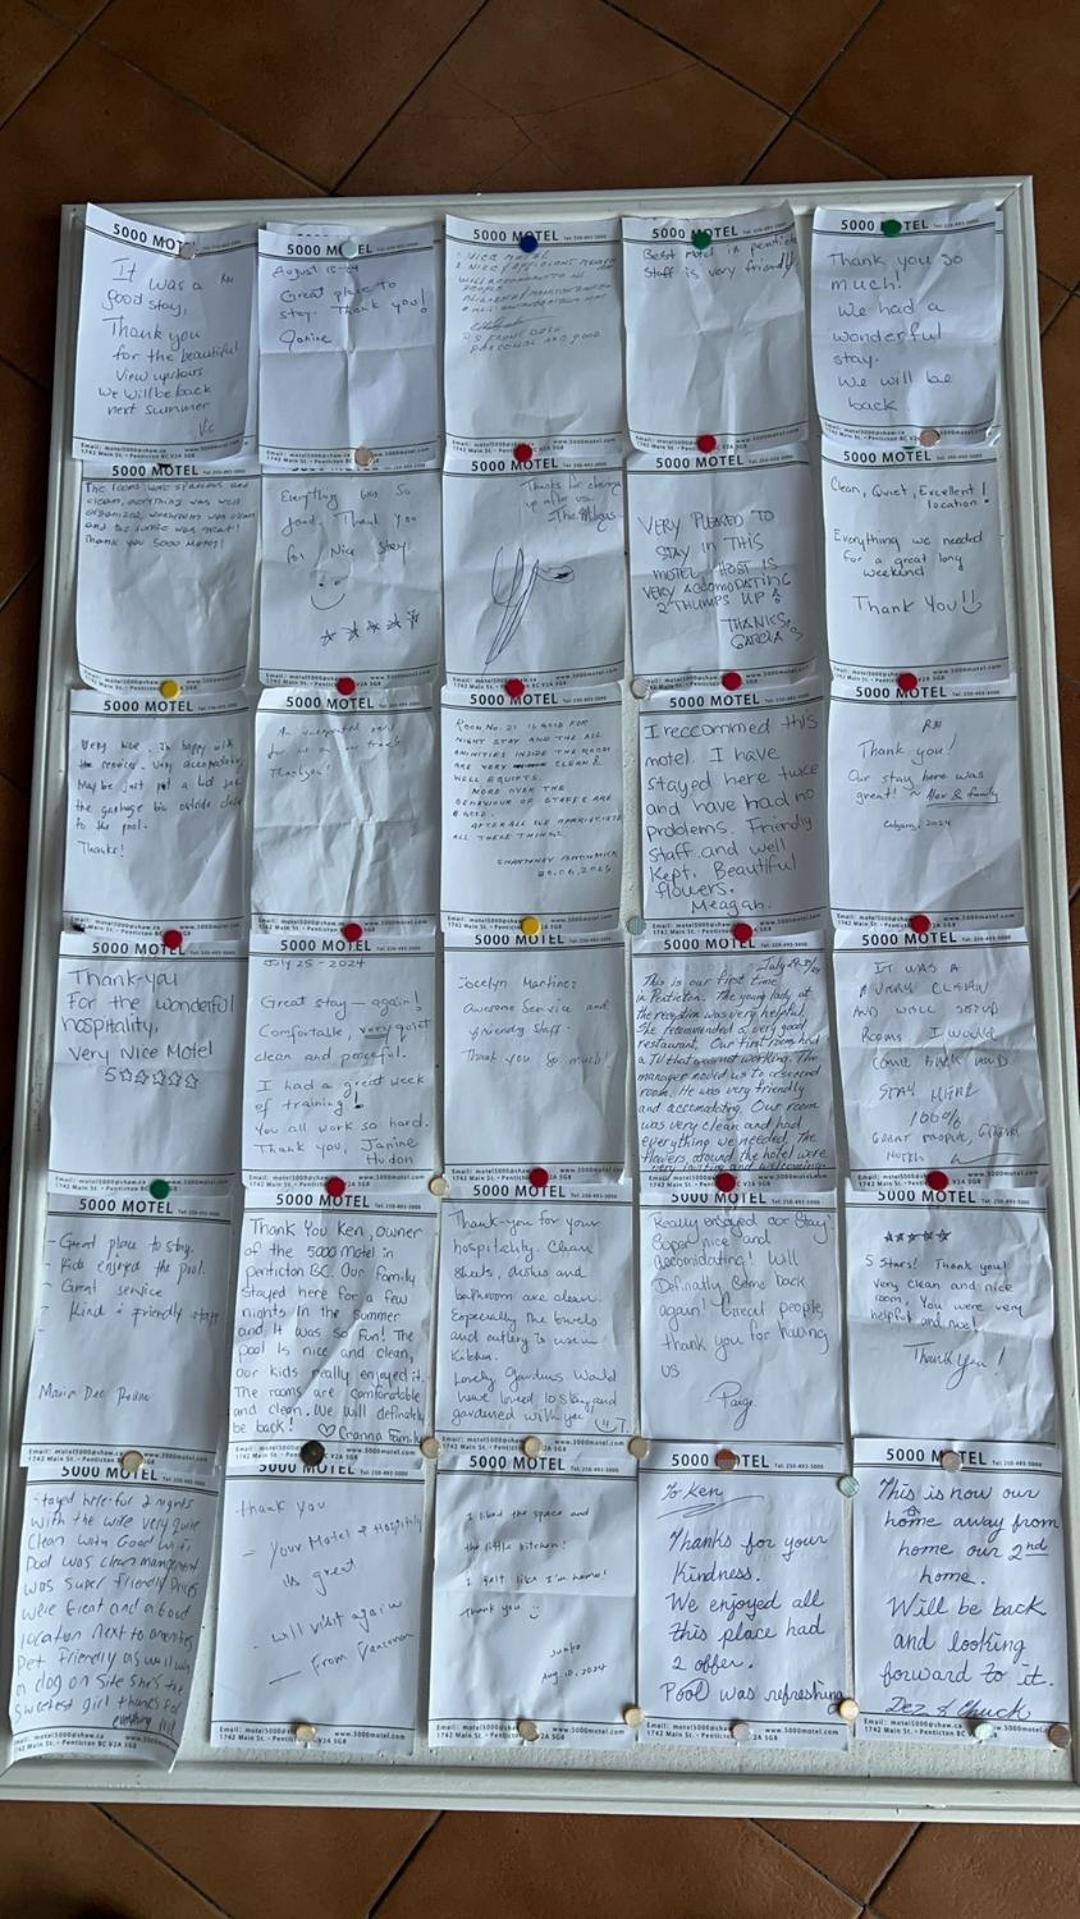 5000 MOT
It was a
good stay,
Thank you
for the beautiful
view upstairs
We will be back
next summer
Email: motel5000@shaw.ca www.5000motel.com
1742 Main St. - Penticton BC V2A 5G8
5000 M EL
August
Great place to
stay. Thank you!
Janine
5000 MOTEL Tel: 250-493-5000
NICE MOTEL
5000 MOTEL
Best motel in
Staff is very friendly
5000 TEL
Thank you so
much!
We had a
wonderful
stay.
We will be
back
5000 MOTEL Tel: 250-493-5000
The rooms were spacious and
clean, everything was well
organized, washroom was clean
and the service was great!
Thank you 5000 Motel!
Everything was so
good, Thank you
for Nice stay
5000 MOTEL Tel: 250-493-5000
Thanks for
up after us.
5000 MOTEL Tel: 250-493-5000
VERY PLEASED TO
STAY IN THIS
MOTEL HOST IS
VERY ACCOMODATING
2 THUMPS UP!
THANKS,
GARCIA'S
5000 MOTEL Tel: 250-493-5000
Clean, Quiet, Excellent
location!
Everything we needed
for a great long
weekend
Thank You!!
5000 MOTEL Tel: 250-493-5000
Very nice. Im happy with
the services. Very accomodating
May be just put a Lid
the garbage bin outside close
to the pool.
Thanks!
5000 MOTEL Tel: 250-493-5000
An unexpected
for us on our
Thankyou!
5000 MOTEL Tel: 250-493-5000
ROOM No. 21 IS GOOD FOR
NIGHT STAY AND THE ALL
AMINITIES INSIDE THE ROOM
ARE VERY CLEAN &
WELL EQUIPTS.
MORE OVER THE
BEHAVIOUR OF STAFFS ARE
GOOD.
AFTER ALL WE APPRICIATE
ALL THESE THINGS.
5000 MOTEL Tel: 250-493-5000
I reccommed this
motel. I have
stayed here twice
and have had no
problems. Friendly
staff and well
kept. Beautiful
flowers.
Meagan.
5000 MOTEL Tel: 250-493-5000
Thank you!
Our stay here was
great! ~ Alex & family
Calgary, 2024
5000 MOTEL Tel: 250-493-5000
Thank-you
For the wonderful
hospitality.
Very Nice Motel
5☆☆☆☆☆
5000 MOTEL Tel: 250-493-5000
July 25 - 2024
Great stay - again!
Comfortable, very quiet
clean and peaceful.
I had a great week
of training!
You all work so hard.
Thank you, Janine
Hudon
5000 MOTEL Tel: 250-493-5000
Jocelyn Martinez
Awesome Service and
friendly staff.
Thank you so much!
5000 MOTEL Tel: 250-493-5000
This is our first time
in Penticton. The young lady at
the reception was very helpful.
She recommended a very good
restaurant. Our first room had
a TV that was not working. The
manager moved us to a second
room. He was very friendly
and accomodating. Our room
was very clean and had
everything we needed. The
flowers around the hotel were
very inviting and welcoming.
5000 MOTEL Tel: 250-493-5000
IT WAS A
VERY CLEAN
AND WELL SETUP
Rooms I would
COME BACK AND
STAY HERE
100%
GREAT PEOPLE,
5000 MOTEL Tel: 250-493-5000
- Great place to stay.
- Kids enjoyed the pool.
- Great service
- Kind & friendly staff
-
5000 MOTEL Tel: 250-493-5000
Thank You Ken, owner
of the 5000 Motel in
Penticton BC. Our family
stayed here for a few
nights in the summer
and it was so fun! The
pool is nice and clean,
our kids really enjoyed it.
The rooms are comfortable
and clean. We will definately
be back! ♡ Cranna Family
5000 MOTEL Tel: 250-493-5000
Thank-you for your
hospitality. Clean
sheets, dishes and
bathroom are clean.
Especially the towels
and cutlery to use in
kitchen.
Lovely gardens would
have loved to stay and
gardened with you
5000 MOTEL Tel: 250-493-5000
Really enjoyed our Stay!
Super nice and
accomidating! Will
Definatly come back
again! Great people,
thank you for having
us
Paige
5000 MOTEL Tel: 250-493-5000
☆☆☆☆☆
5 Stars! Thank you!
Very clean and nice
room, You were very
helpful and nice!
Thank you!
5000 MOTEL Tel: 250-493-5000
Stayed here for 2 nights
with the wife very quite
Clean with Good wifi
Pool was clean management
was super friendly Prices
were Great and a Good
location next to amenities
Pet Friendly as well with
a dog on site She's the
sweetest girl thanks for
everything
5000 MOTEL Tel: 250-493-5000
Thank you
- Your Motel & Hospitality
is great
- will visit again
- From Vancouver
5000 MOTEL Tel: 250-493-5000
I liked the space and
the little kitchen!
I felt like I'm home!
Thank you
Aug. 10, 2024
5000 OTEL Tel: 250-493-5000
To Ken
Thanks for your
Kindness.
We enjoyed all
this place had
2 offer.
Pool was refreshing
5000 MOTEL Tel: 250-493-5000
This is now our
home away from
home our 2nd
home.
Will be back
and looking
forward to it.
Dez & Chuck
Email: motel5000@shaw.ca www.5000motel.com
1742 Main St. - Penticton BC V2A 5G8